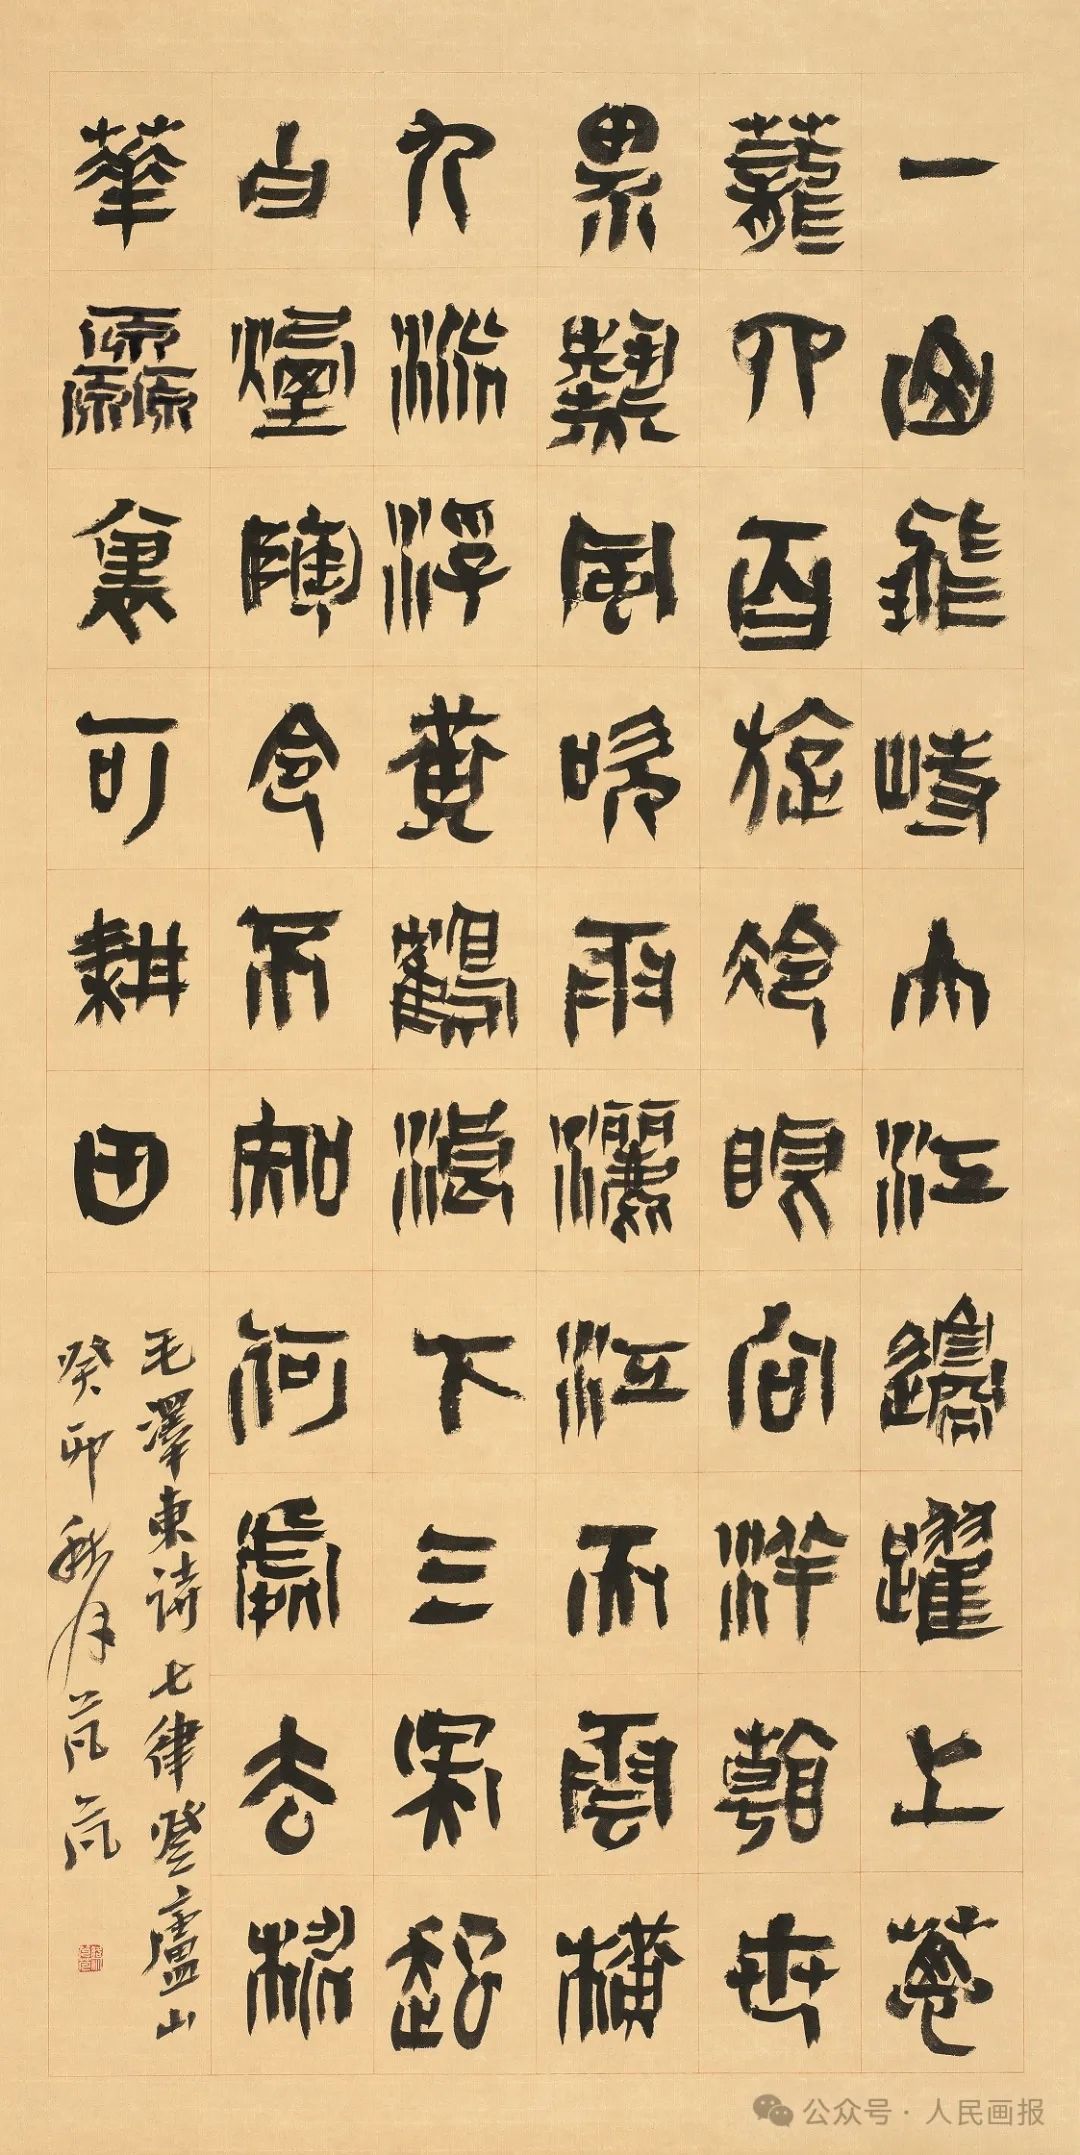 一山飛峙大江邊躍上蔥
蘢四百旋冷眼向洋看世
界熱風吹雨灑江天雲橫
九派浮黃鶴浪下三吳起
白煙陶令不知何處去桃
華源裏可耕田
毛澤東詩七律登廬山
癸卯秋月芃芃
公众号 · 人民画报